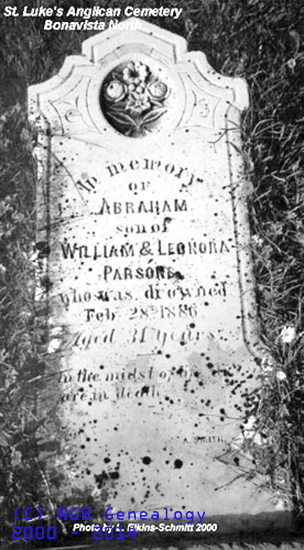 St. Luke's Anglican Cemetery
Bonavista North
In memory
OF
ABRAHAM
son of
WILLIAM & LEONORA
PARSONS
who was drowned
Feb 28th 1886
Aged 31 years
In the midst of
are in death
A. SMITH
(C) NGB Genealogy
2000 - 2014
Photo by L. Elkins-Schmitt 2000